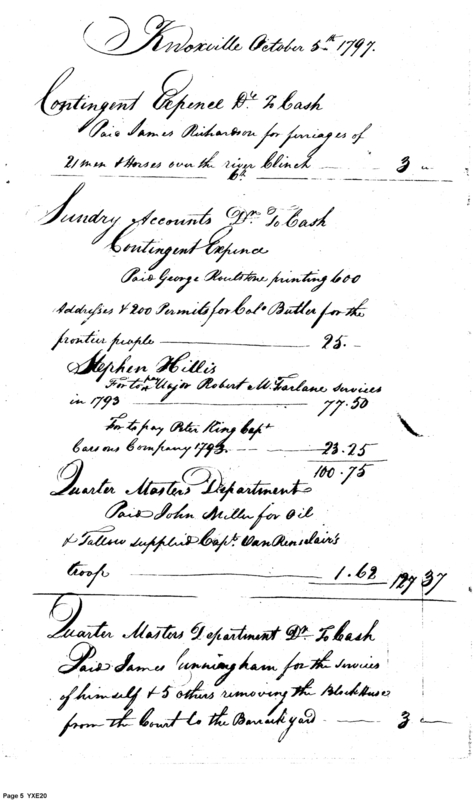 Knoxville October 5th 1797.
Contingent Expence Dr To Cash
Paid James Richardson for ferriages of
21 men & Horses over the river Clinch 3 "
6th
Sundry Accounts Drs To Cash
Contingent Expence
Paid George Roulstone printing 600
Addresses & 200 Permits for Colo Butler for the
frontier people 25.-
Stephen Hillis
For to pay Major Robert McFarlane services
in 1793 77.50
For to pay Peter King Capt
Carsons Company 1793. 23.25
100.75
Quarter Masters Department
Paid John Miller for Oil
& Tallow supplied Capt. VanRenselair's
troop 1.62 127 37
Quarter Masters Department Dr To Cash
Paid James Cunningham for the services
of himself & 5 others removing the Blockhouse
from the Court to the Barrack yard 3 "
Page 5 YXE20